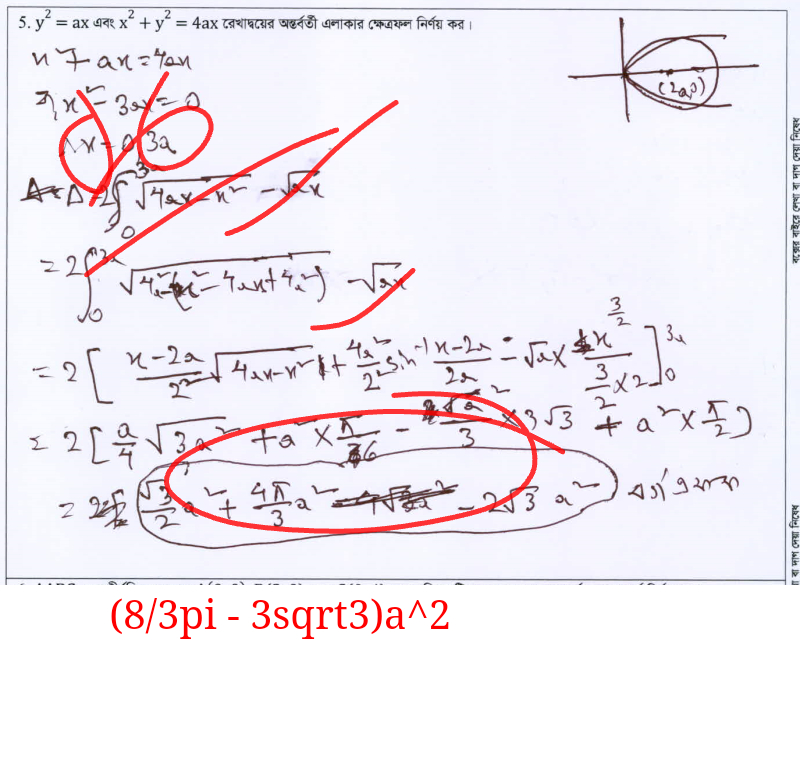 5. y² = ax এবং x² + y² = 4ax রেখাদ্বয়ের অন্তর্বর্তী এলাকার ক্ষেত্রফল নির্ণয় কর।
x² + ax = 4ax
বা, x² - 3ax = 0
x = 0, 3a
(2a,0)
Δ = 2∫₀^3a √(4ax-x²) - √ax
= 2∫₀^3a √(4a²-(x²-4ax+4a²)) - √ax
= 2[ (x-2a)/2 √(4ax-x²) + 4a²/2 sin⁻¹ (x-2a)/2a - √a × x^(3/2)/(3/2) ]₀^3a
= 2[ a/4 √3a² + a² × π/6 - a²/3 × 3√3 + a² × π/2 )
= √3/2 a² + 4π/3 a² - 2√3 a² বর্গ একক
(8/3pi - 3sqrt3)a^2
বক্সের বাইরে লেখা বা দাগ দেয়া নিষেধ
বা দাগ দেয়া নিষেধ